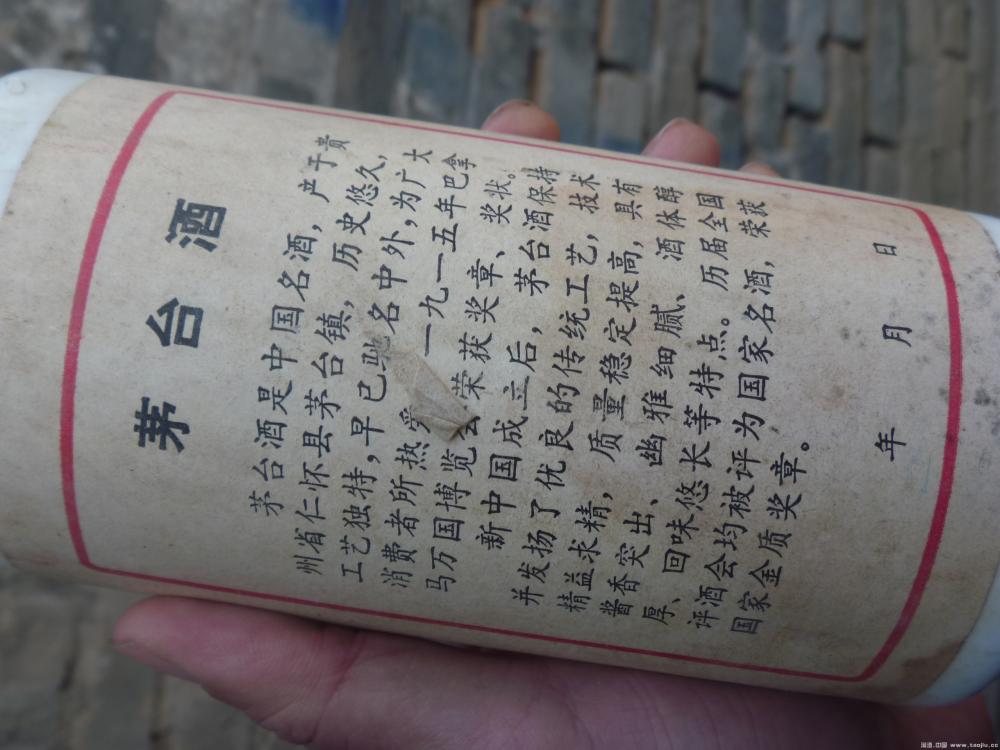 茅台酒
茅台酒是中国名酒，产于贵
州省仁怀县茅台镇，历史悠久，
工艺独特，早已驰名中外，为广大
消费者所热爱 一九一五年巴拿
马万国博览会荣获奖章、奖状。
新中国成立后，茅台酒保持
并发扬了优良的传统工艺，技术
精益求精，质量稳定提高，具有
酱香突出、幽雅细腻、酒体醇
厚、回味悠长等特点。历届全国
评酒会均被评为国家名酒，荣获
国家金质奖章。
年 月 日
淘酒.中国 www.taojiu.cc